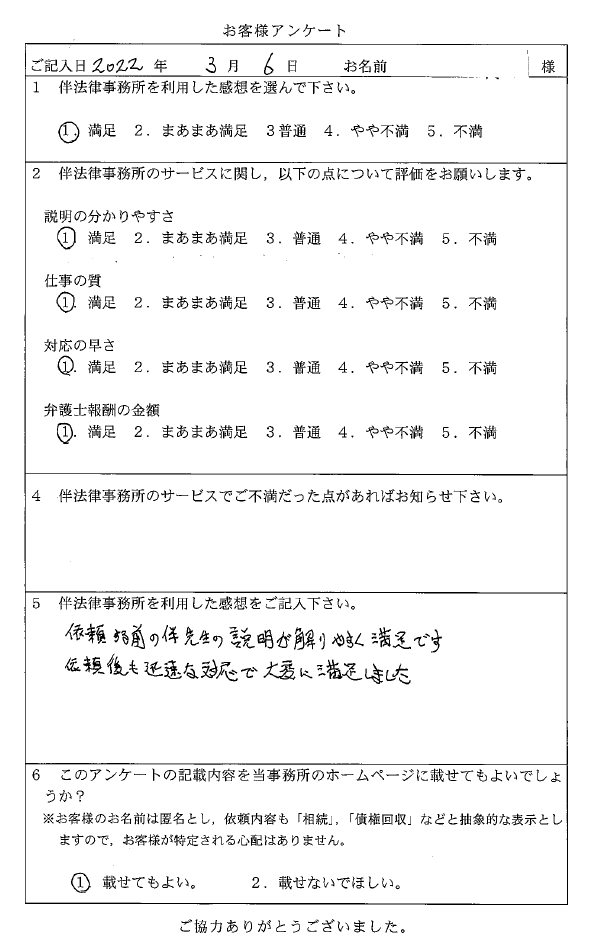 お客様アンケート
ご記入日 2022 年 3 月 6 日 お名前 様
1 伴法律事務所を利用した感想を選んで下さい。
1. 満足 2. まあまあ満足 3 普通 4. やや不満 5. 不満
2 伴法律事務所のサービスに関し,以下の点について評価をお願いします。
説明の分かりやすさ
1. 満足 2. まあまあ満足 3. 普通 4. やや不満 5. 不満
仕事の質
1. 満足 2. まあまあ満足 3. 普通 4. やや不満 5. 不満
対応の早さ
1. 満足 2. まあまあ満足 3. 普通 4. やや不満 5. 不満
弁護士報酬の金額
1. 満足 2. まあまあ満足 3. 普通 4. やや不満 5. 不満
4 伴法律事務所のサービスでご不満だった点があればお知らせ下さい。
5 伴法律事務所を利用した感想をご記入下さい。
依頼 前の伴先生の説明が解りやすく満足です
依頼後も迅速な対応で大変に満足しました
6 このアンケートの記載内容を当事務所のホームページに載せてもよいでしょ
うか?
※お客様のお名前は匿名とし,依頼内容も「相続」,「債権回収」などと抽象的な表示とし
ますので,お客様が特定される心配はありません。
1. 載せてもよい。 2. 載せないでほしい。
ご協力ありがとうございました。